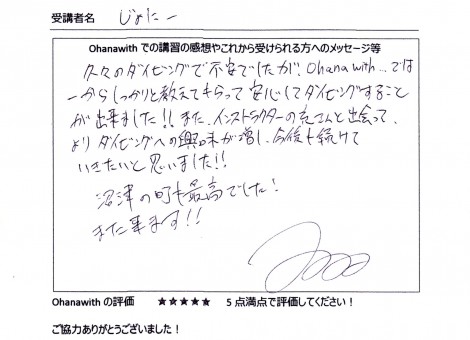 受講者名 じょたー
Ohanawith での講習の感想やこれから受けられる方へのメッセージ等
久々のダイビングで不安でしたが、Ohanawith…では
一からしっかりと教えてもらって安心してダイビングすること
が出来ました!!また、インストラクターの克さんと出会って、
よりダイビングへの興味が増し、今後も続けて
いきたいと思いました!!
沼津の町も最高でした!
また来ます!!
Ohanawith の評価 ★★★★★ 5 点満点で評価してください!
ご協力ありがとうございました!